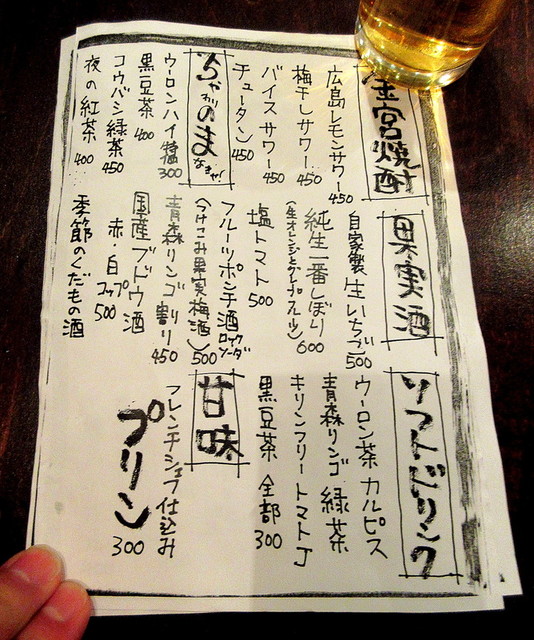 金宮焼酎
広島レモンサワー 450
梅干しサワー 450
バイスサワー 450
チュータン 450
ちゃのま
ウーロンハイ 特価 300
黒豆茶 400
コウバシ緑茶 450
夜の紅茶 400
果実酒
自家製 生いちご 500
純生一番しぼり 600
(生オレンジとグレープフルーツ)
塩トマト 500
フルーツポンチ酒 ロック ソーダ
(つけこみ果実梅酒) 500
青森リンゴ割り 450
国産ブドウ酒
赤・白 コップ 500
季節のくだもの酒
ソフトドリンク
ウーロン茶 カルピス
青森リンゴ 緑茶
キリンフリー トマトJ
黒豆茶 全部 300
甘味
フレンチシェフ仕込み
プリン 300